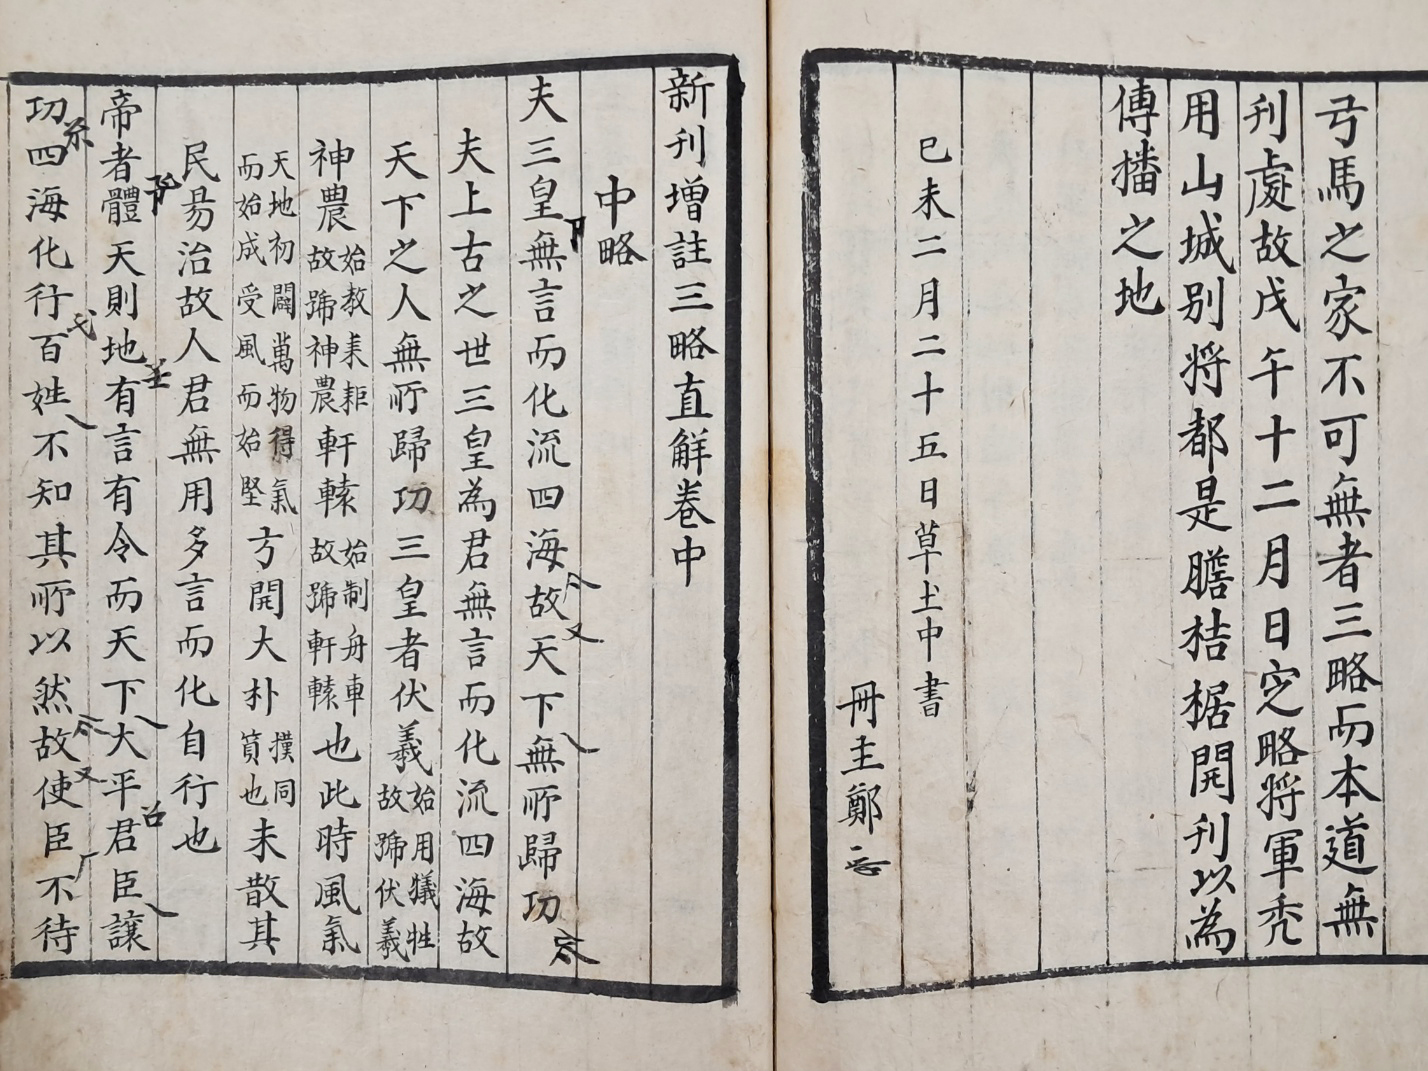 弓馬之家不可無者三略而本道無
刊處故戊午十二月日定略將軍禿
用山城別將都是膽桔椐開刊以為
傳播之地
己未二月二十五日草土中書
冊主鄭
新刊增註三略直解卷中
中略
夫三皇無言而化流四海故天下無所歸功
夫上古之世三皇為君無言而化流四海故
天下之人無所歸功三皇者伏羲始用犧牲故號伏羲
神農始教耒耟故號神農軒轅始制舟車故號軒轅也此時風氣
天地初闢萬物得氣而始成受風而始堅方開大朴撲同質也未散其
民易治故人君無用多言而化自行也
帝者體天則地有言有令而天下大平君臣讓
功四海化行百姓不知其所以然故使臣不待